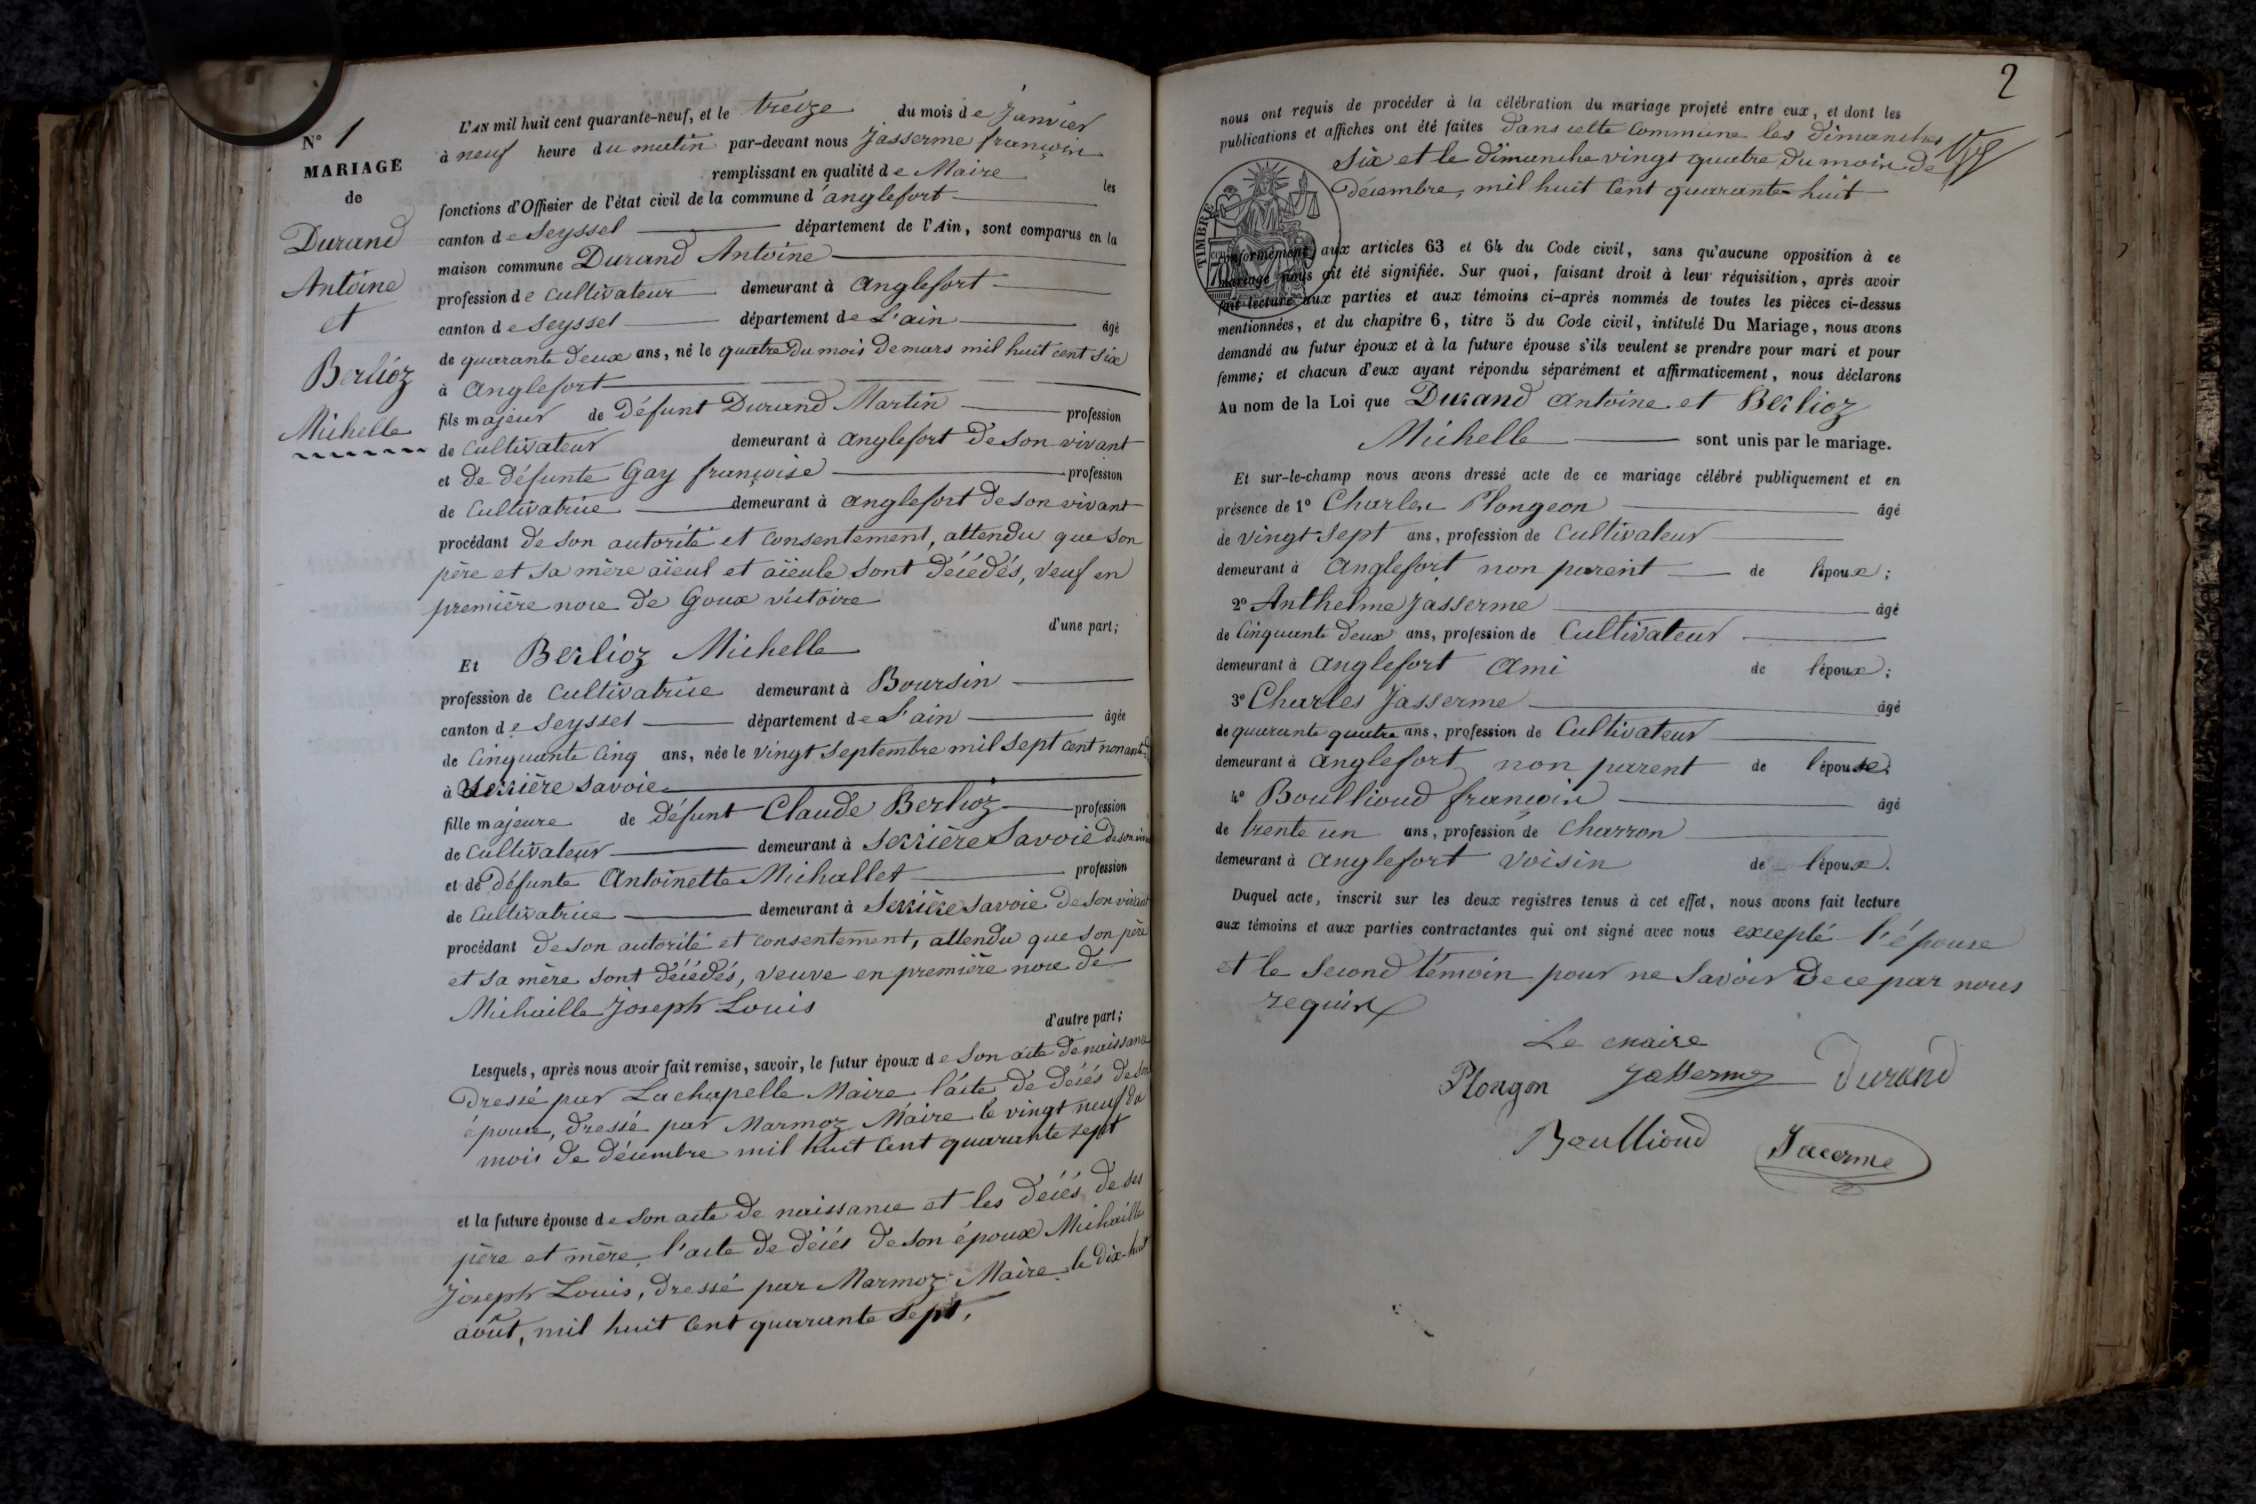 N° 1
MARIAGE
de
Durand
Antoine
et
Berlioz
Michelle
L'AN mil huit cent quarante-neuf, et le treize du mois de Janvier
à neuf heure du matin par-devant nous Jasserme françois
remplissant en qualité de Maire les
fonctions d'Officier de l'état civil de la commune d'anglefort
canton de Seyssel département de l'Ain, sont comparus en la
maison commune Durand Antoine
profession de cultivateur demeurant à anglefort
canton de Seyssel département de L'ain âgé
de quarante deux ans, né le quatre du mois de mars mil huit cent six
à anglefort
fils majeur de défunt Durand Martin profession
de cultivateur demeurant à anglefort de son vivant
et de défunte Gay françoise profession
de cultivatrice demeurant à anglefort de son vivant
procédant de son autorité et consentement, attendu que son
père et sa mère aïeul et aïeule sont décédés, veuf en
première noce de Goux victoire
d'une part;
Et Berlioz Michelle
profession de cultivatrice demeurant à Boursin
canton de Seyssel département de L'ain âgée
de cinquante cinq ans, née le vingt septembre mil sept cent nonante
à Serrière savoie
fille majeure de défunt Claude Berlioz profession
de cultivateur demeurant à Serrière Savoie de son
et de défunte Antoinette Michallet profession
de cultivatrice demeurant à Serrière savoie de son vivant
procédant de son autorité et consentement, attendu que son père
et sa mère sont décédés, veuve en première noce de
Michaille Joseph Louis
d'autre part;
Lesquels, après nous avoir fait remise, savoir, le futur époux de son acte de naissance
dressé par Lachapelle Maire l'acte de décés de son
épouse, dressé par Marmoz Maire le vingt neuf du
mois de décembre mil huit cent quarante sept
et la future épouse de son acte de naissance et les décés de ses
père et mère, l'acte de décés de son époux Michaille
Joseph Louis, dressé par Marmoz Maire le dix-huit
août, mil huit cent quarante sept,
2
nous ont requis de procéder à la célébration du mariage projeté entre eux, et dont les
publications et affiches ont été faites dans cette commune les dimanches
six et le dimanche vingt quatre du mois de
décembre, mil huit cent quarante-huit
TIMBRE
conformément aux articles 63 et 64 du Code civil, sans qu'aucune opposition à ce
mariage nous ait été signifiée. Sur quoi, faisant droit à leur réquisition, après avoir
fait lecture aux parties et aux témoins ci-après nommés de toutes les pièces ci-dessus
mentionnées, et du chapitre 6, titre 5 du Code civil, intitulé Du Mariage, nous avons
demandé au futur époux et à la future épouse s'ils veulent se prendre pour mari et pour
femme; et chacun d'eux ayant répondu séparément et affirmativement, nous déclarons
Au nom de la Loi que Durand antoine et Berlioz
Michelle sont unis par le mariage.
Et sur-le-champ nous avons dressé acte de ce mariage célébré publiquement et en
présence de 1° Charles Plongeon âgé
de vingt sept ans, profession de cultivateur
demeurant à anglefort non parent de l'époux;
2° Anthelme Jasserme âgé
de cinquante deux ans, profession de cultivateur
demeurant à anglefort ami de l'époux;
3° Charles Jasserme âgé
de quarante quatre ans, profession de cultivateur
demeurant à anglefort non parent de l'épouse;
4° Boullioud françois âgé
de trente un ans, profession de charron
demeurant à anglefort voisin de l'époux.
Duquel acte, inscrit sur les deux registres tenus à cet effet, nous avons fait lecture
aux témoins et aux parties contractantes qui ont signé avec nous excepté l'épouse
et le second témoin pour ne savoir de ce par nous
requis
Le maire
Plongon Jassermoz Durand
Boullioud Jacerme